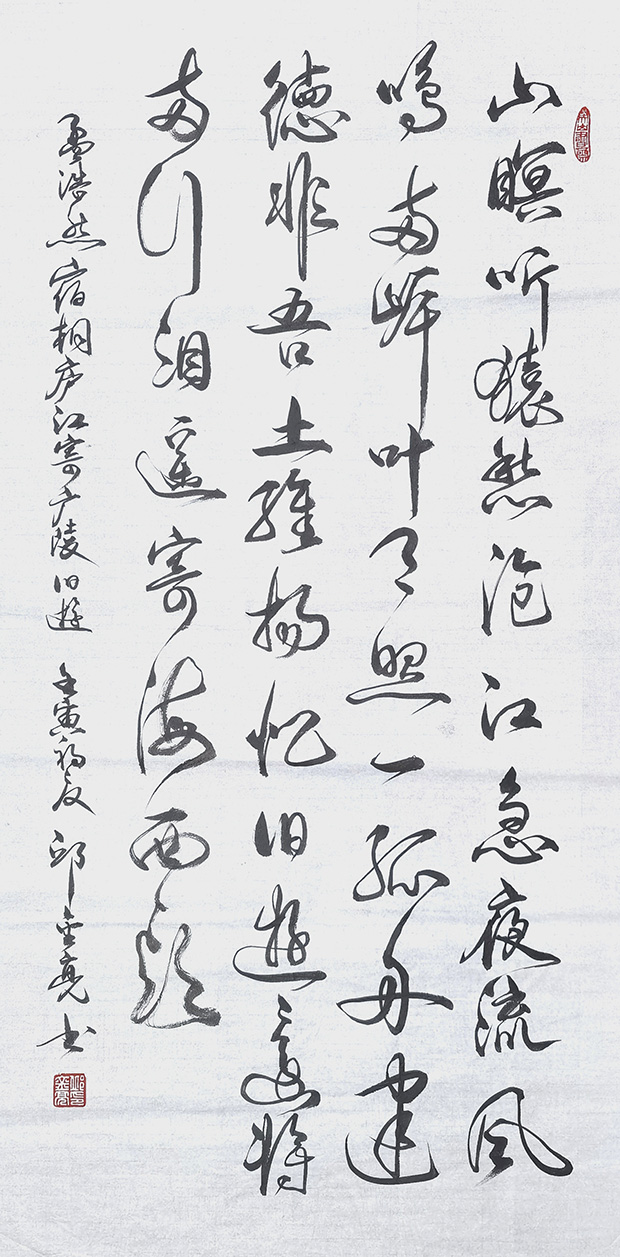 山暝听猿愁沧江急夜流风
鸣两岸叶月照一孤舟建
德非吾土维扬忆旧遊还将
两行泪遥寄海西头
孟浩然宿桐庐江寄广陵旧遊 壬寅初夏 邱亮书